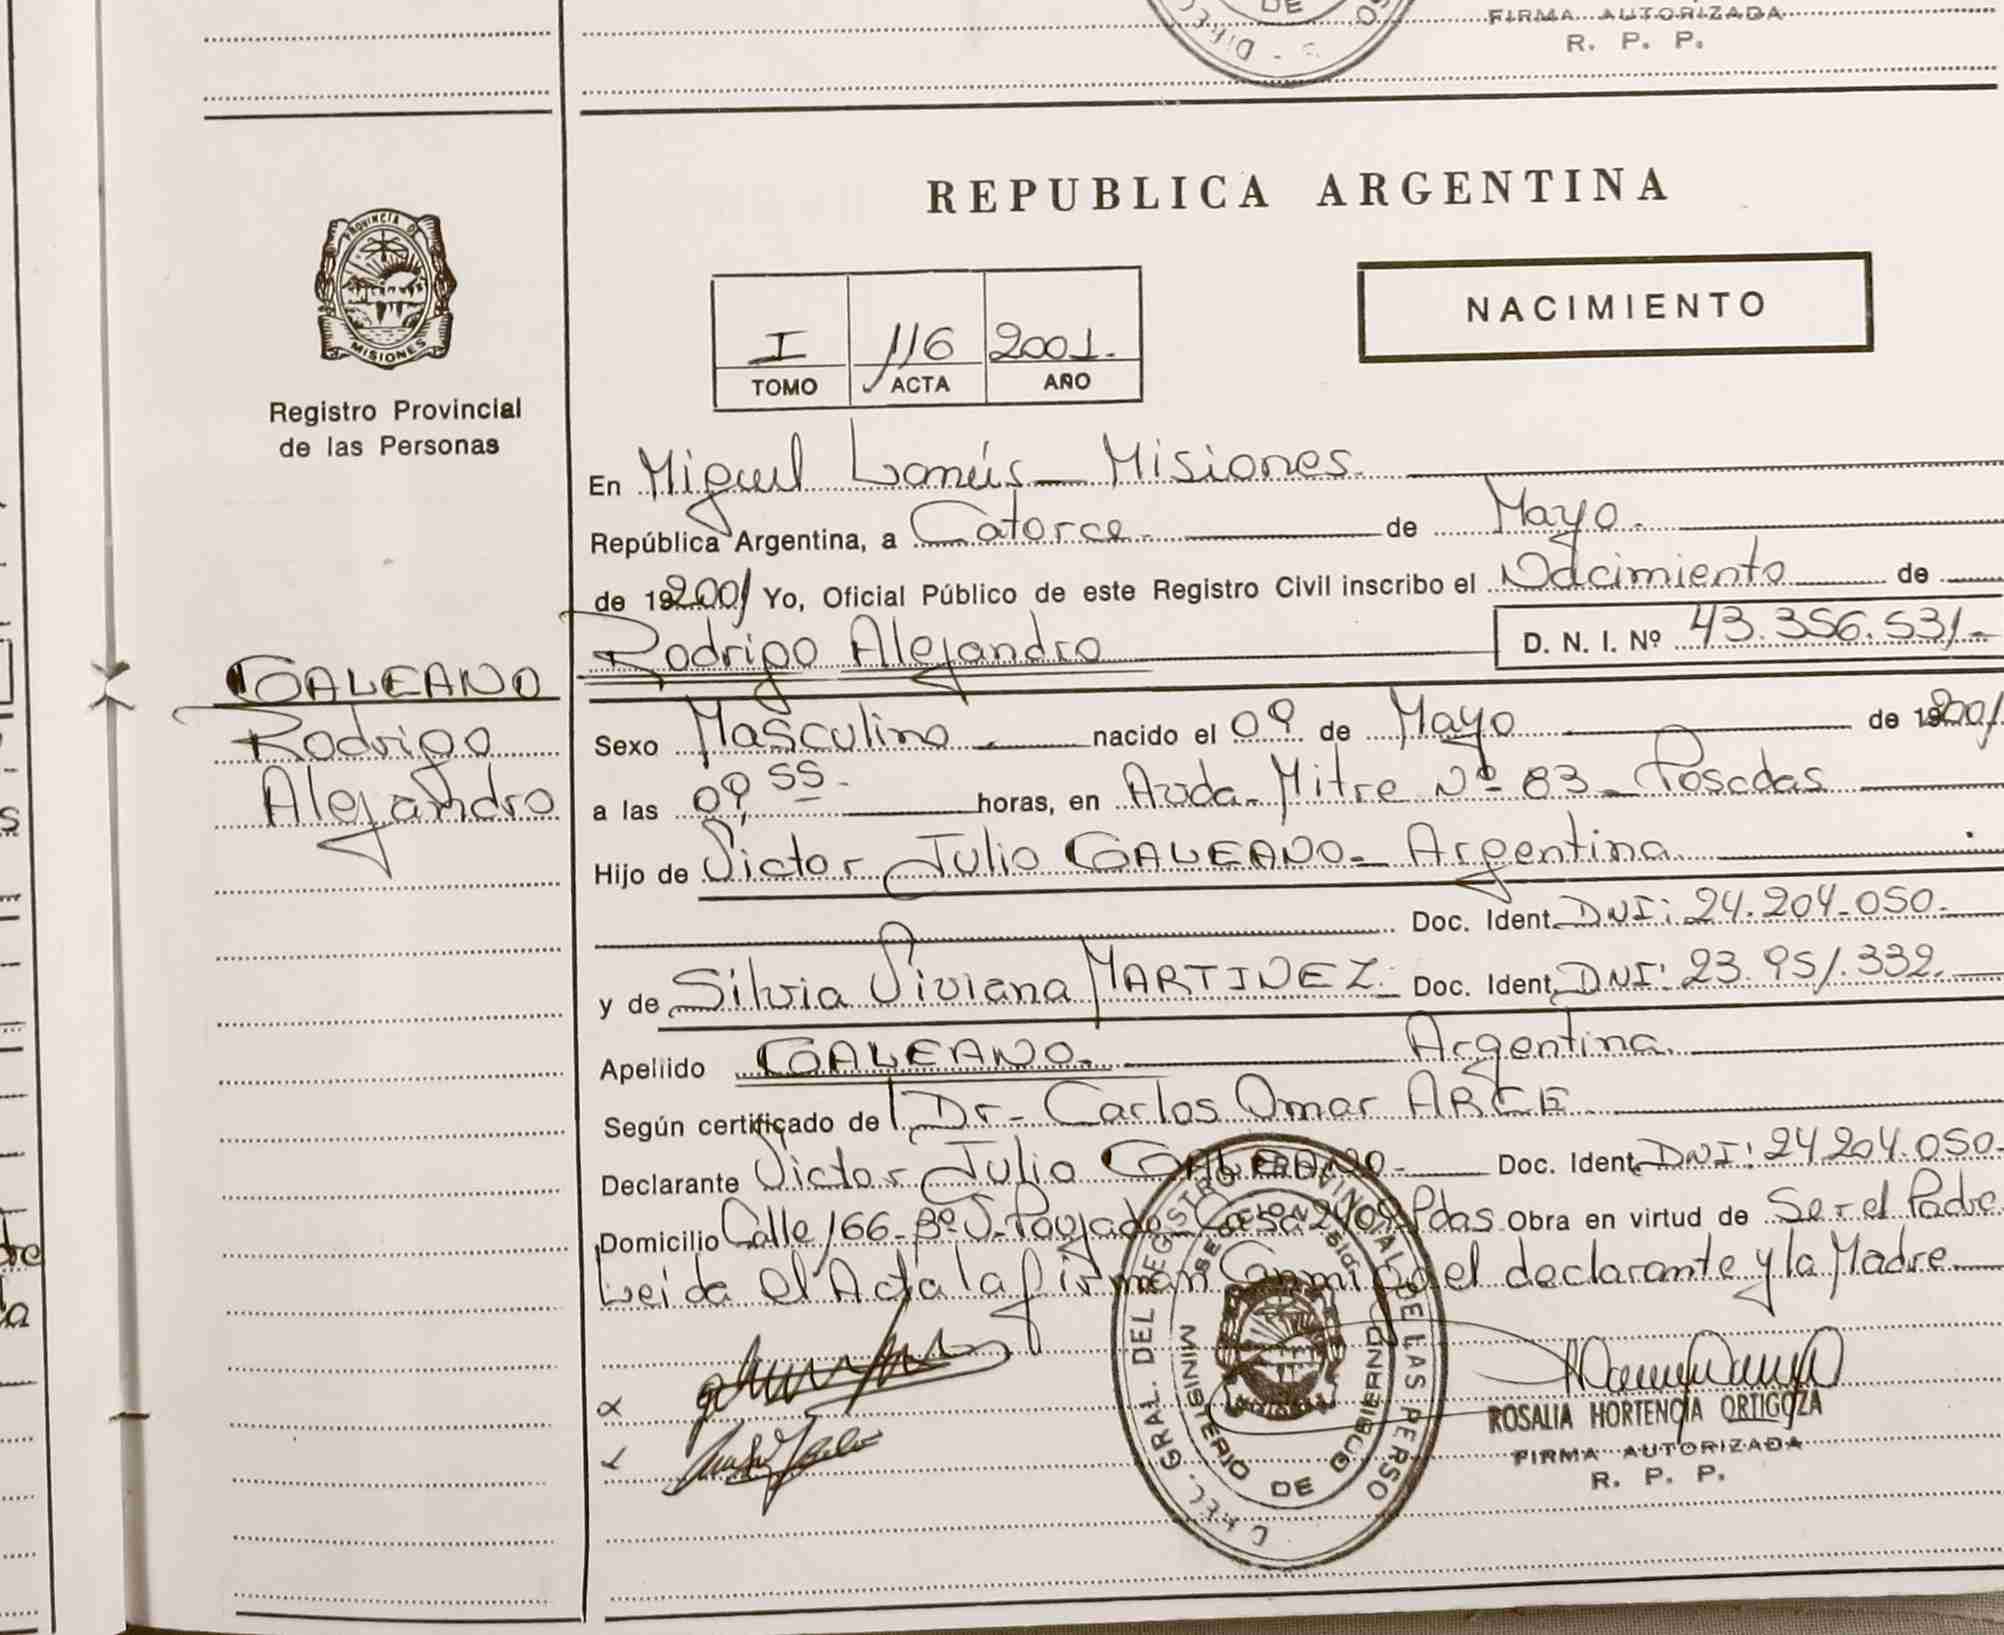 DE
FIRMA AUTORIZADA
R. P. P.
REPUBLICA ARGENTINA
PROVINCIA DE
MISIONES
NACIMIENTO
I 116 2001.
TOMO ACTA AÑO
Registro Provincial
de las Personas
En Miguel Lanús - Misiones.
República Argentina, a Catorce. de Mayo.
de 19 2001 Yo, Oficial Público de este Registro Civil inscribo el Nacimiento de
Rodrigo Alejandro D. N. I. Nº 43.356.531.-
GALEANO
Rodrigo
Alejandro
Sexo Masculino - nacido el 09 de Mayo de 19 2001
a las 09,55.- horas, en Avda. Mitre Nº 83 - Posadas
Hijo de Victor Julio GALEANO - Argentina
Doc. Ident. DNI: 24.204.050.
y de Silvia Viviana MARTINEZ. Doc. Ident. DNI: 23.951.332.
Apellido GALEANO. Argentina.
Según certificado de Dr. Carlos Omar ARCE
Declarante Victor Julio GALEANO. Doc. Ident. DNI: 24.204.050.
Domicilio Calle 166 - Bº S. Casa 2409 Pdas. Obra en virtud de Ser el Padre
Leida el Acta la firman Conmigo el declarante y la Madre
GRAL. DEL REGISTRO PROVINCIAL DE LAS PERSO
MINISTERIO DE GOBIERNO
ROSALIA HORTENCIA ORTIGOZA
FIRMA AUTORIZADA
R. P. P.